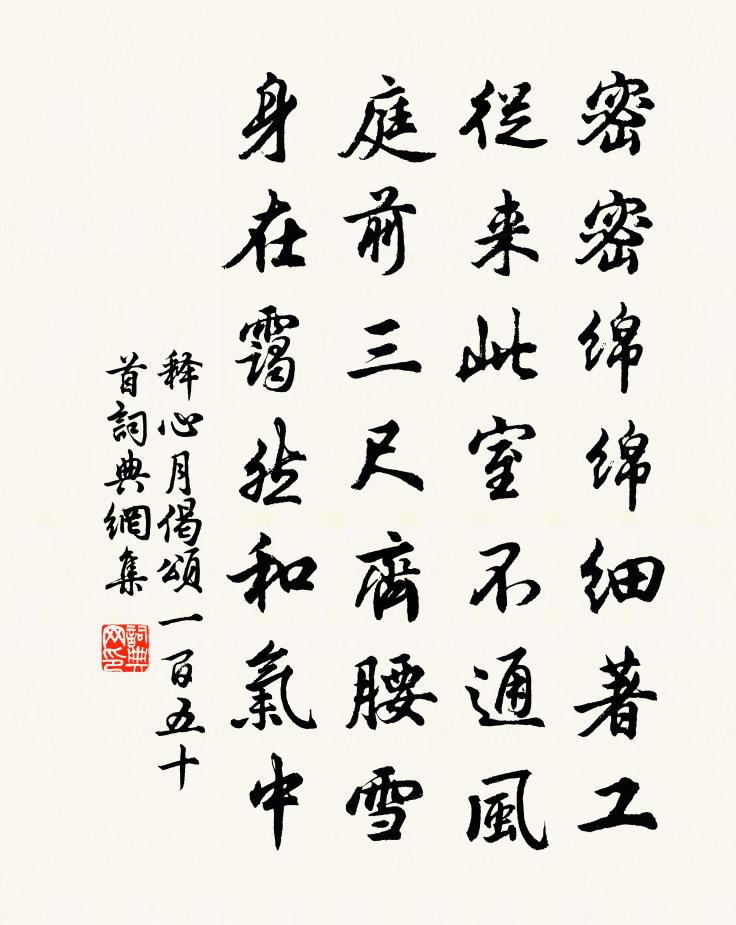 密密绵绵细著工
従来此室不通風
庭前三尺齊腰雪
身在靄然和氣中
释心月偈頌一百五十
首詞典網集
詞典网印